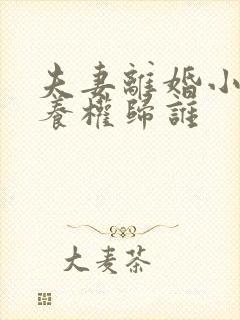 夫妻離婚小
養權歸誰
大麦茶